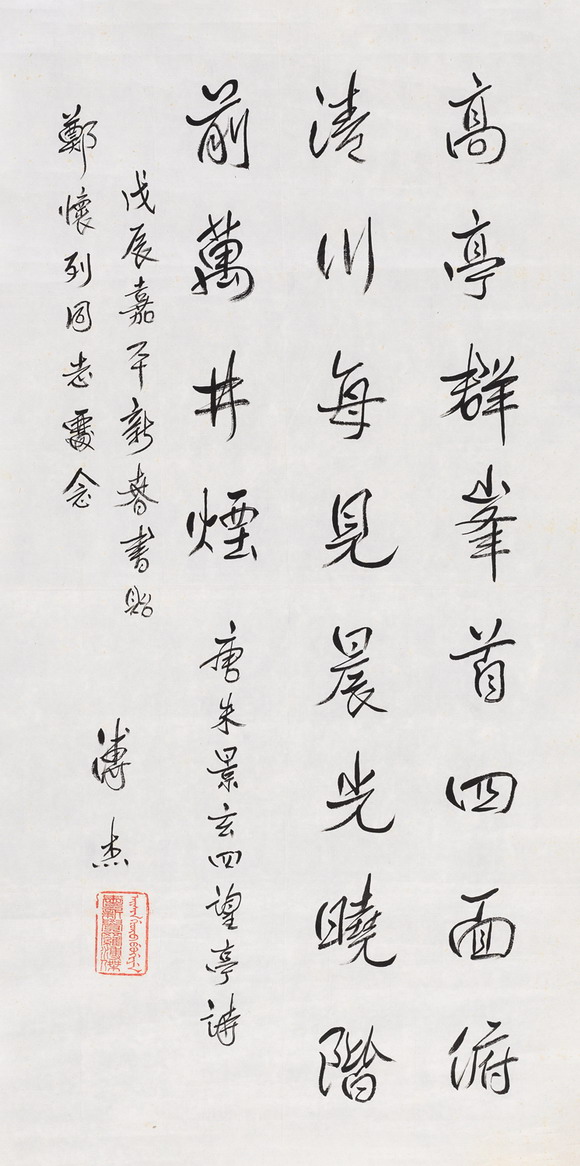 高亭群峯首四面俯
清川每見晨光曉階
前萬井煙
唐朱景玄四望亭詩
戊辰嘉平新春書貽
鄭懷列同志念
溥杰
愛新覺羅溥傑